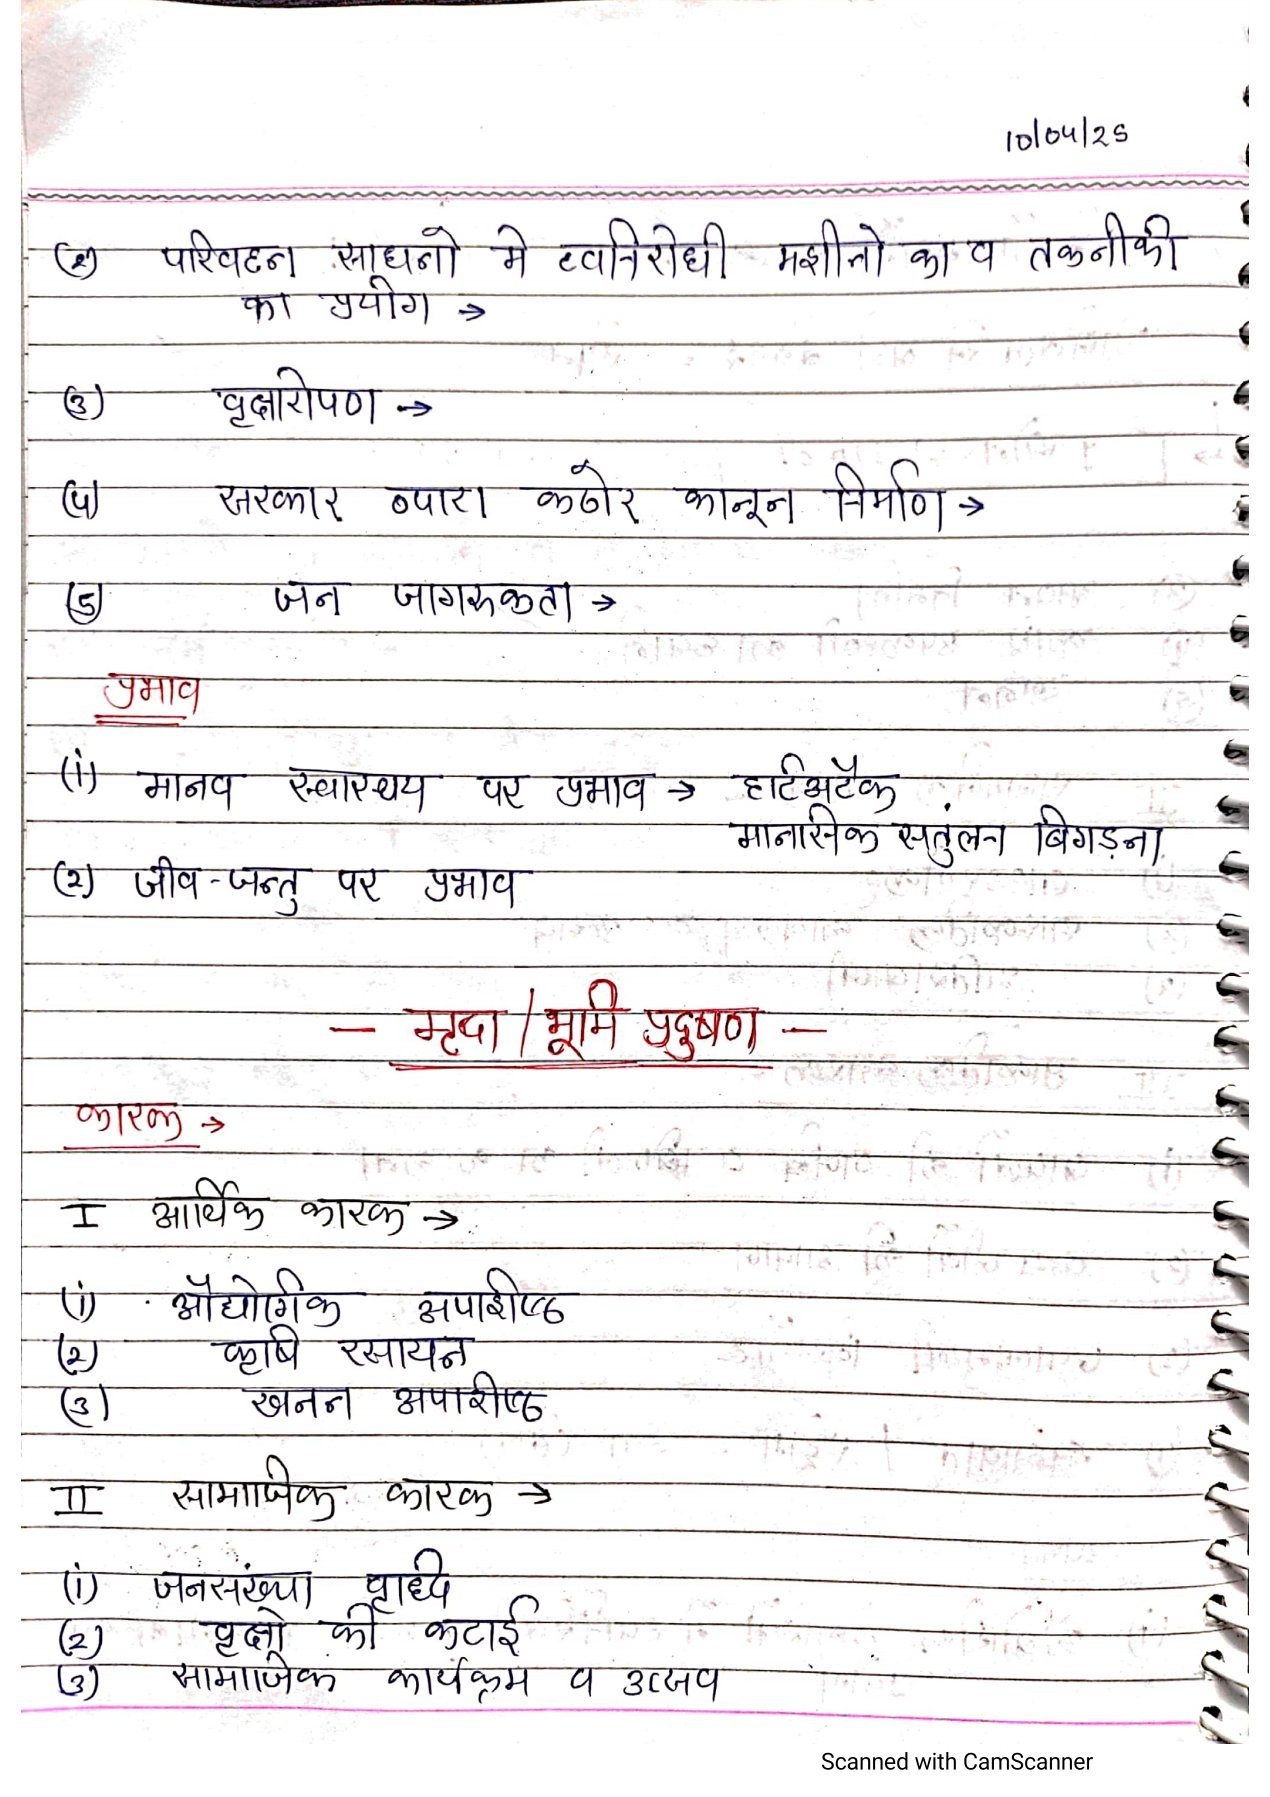 10/04/25
(2) परिवहन साधनो मे ध्वनिरोधी मशीनो का व तकनीकी
का प्रयोग →
(3) वृक्षारोपण →
(4) सरकार व्दारा कठोर कानून निर्माण →
(5) जन जागरुकता →
प्रभाव
(i) मानव स्वास्थय पर प्रभाव → हार्टअटैक
मानसिक सतुंलन बिगड़ना
(2) जीव-जन्तु पर प्रभाव
- मृदा / भूमि प्रदुषण -
कारक →
I आर्थिक कारक →
(i) औद्योगिक अपशिष्ठ
(2) कृषि रसायन
(3) खनन अपशिष्ठ
II सामाजिक कारक →
(i) जनसंख्या वृध्दि
(2) वृक्षो की कटाई
(3) सामाजिक कार्यक्रम व उत्सव
Scanned with CamScanner